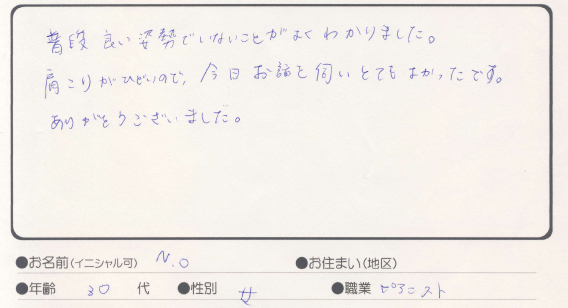 普段良い姿勢でいないことがよくわかりました。
肩こりがひどいので、今日お話を伺いとてもよかったです。
ありがとうございました。
●お名前(イニシャル可) N.O ●お住まい(地区)
●年齢 30 代 ●性別 女 ●職業 ピアニスト